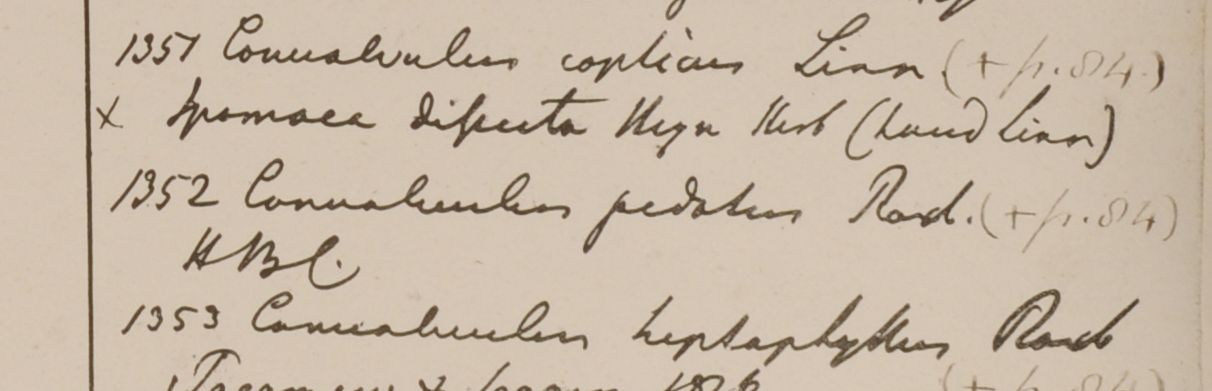 1351 Convalvulus copticus Linn (+ p. 84.)
x Ipomaea dissecta Heyn Herb (haud Linn)
1352 Convalvulus pedatus Roxb. (+ p. 84)
HBC.
1353 Convalvulus heptaphyllus Roxb